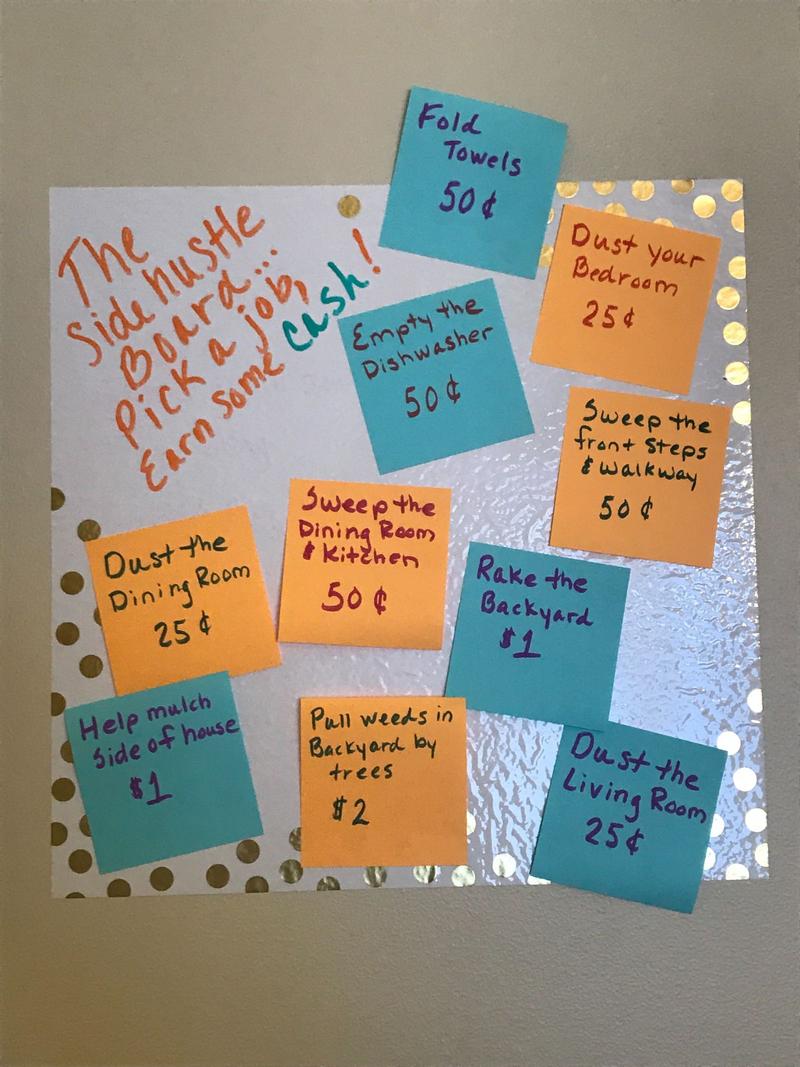 The
Sidehustle
Board...
Pick a job,
Earn some cash!
Fold
Towels
50¢
Dust your
Bedroom
25¢
Empty the
Dishwasher
50¢
Sweep the
front Steps
& Walkway
50¢
Dust the
Dining Room
25¢
Sweep the
Dining Room
& Kitchen
50¢
Rake the
Backyard
$1
Help mulch
Side of house
$1
Pull weeds in
Backyard by
trees
$2
Dust the
Living Room
25¢